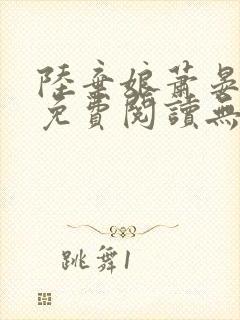 陸棄娘蕭晏
免費閱讀無
跳舞1